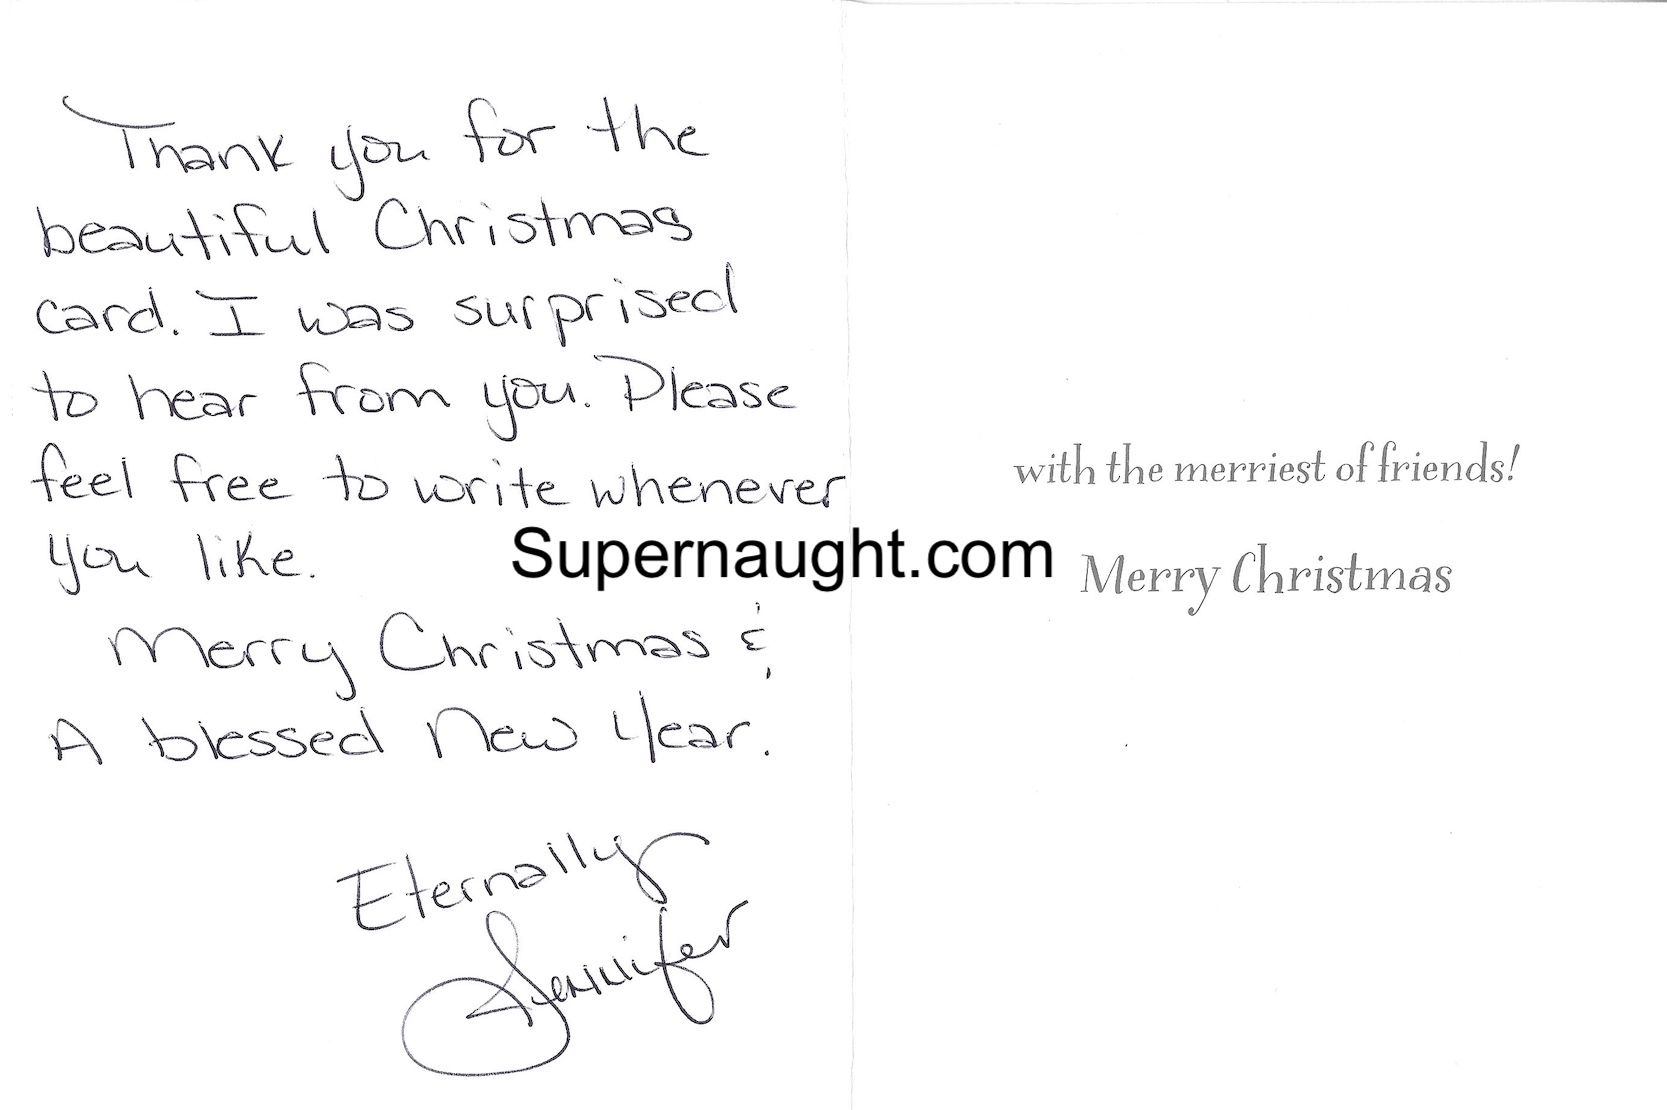 Thank you for the
beautiful Christmas
card. I was surprised
to hear from you. Please
feel free to write whenever
you like.
Merry Christmas &
A blessed New Year.
Eternally
Jennifer
Supernaught.com
with the merriest of friends!
Merry Christmas